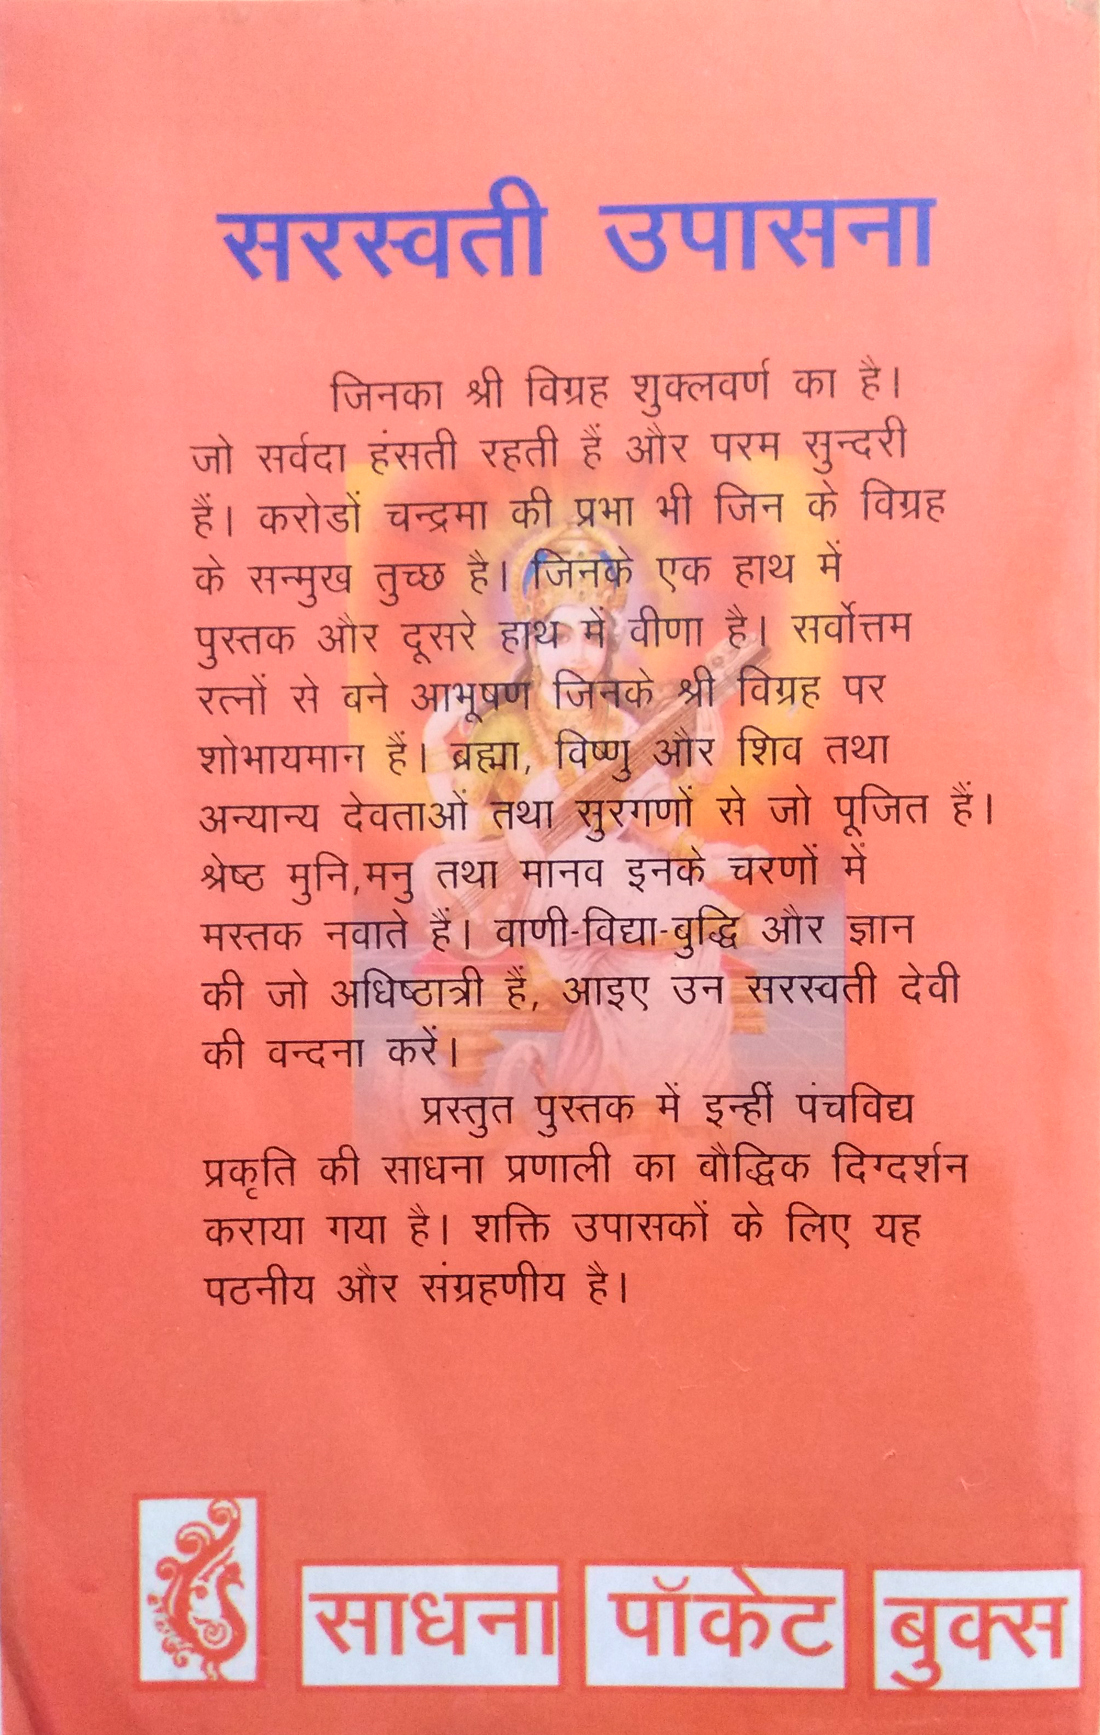 सरस्वती उपासना
जिनका श्री विग्रह शुक्लवर्ण का है।
जो सर्वदा हंसती रहती हैं और परम सुन्दरी
हैं। करोडों चन्द्रमा की प्रभा भी जिन के विग्रह
के सन्मुख तुच्छ है। जिनके एक हाथ में
पुस्तक और दूसरे हाथ में वीणा है। सर्वोत्तम
रत्नों से बने आभूषण जिनके श्री विग्रह पर
शोभायमान हैं। ब्रह्मा, विष्णु और शिव तथा
अन्यान्य देवताओं तथा सुरगणों से जो पूजित हैं।
श्रेष्ठ मुनि,मनु तथा मानव इनके चरणों में
मस्तक नवाते हैं। वाणी-विद्या-बुद्धि और ज्ञान
की जो अधिष्ठात्री हैं, आइए उन सरस्वती देवी
की वन्दना करें।
प्रस्तुत पुस्तक में इन्हीं पंचविद्य
प्रकृति की साधना प्रणाली का बौद्धिक दिग्दर्शन
कराया गया है। शक्ति उपासकों के लिए यह
पठनीय और संग्रहणीय है।
साधना पॉकेट बुक्स